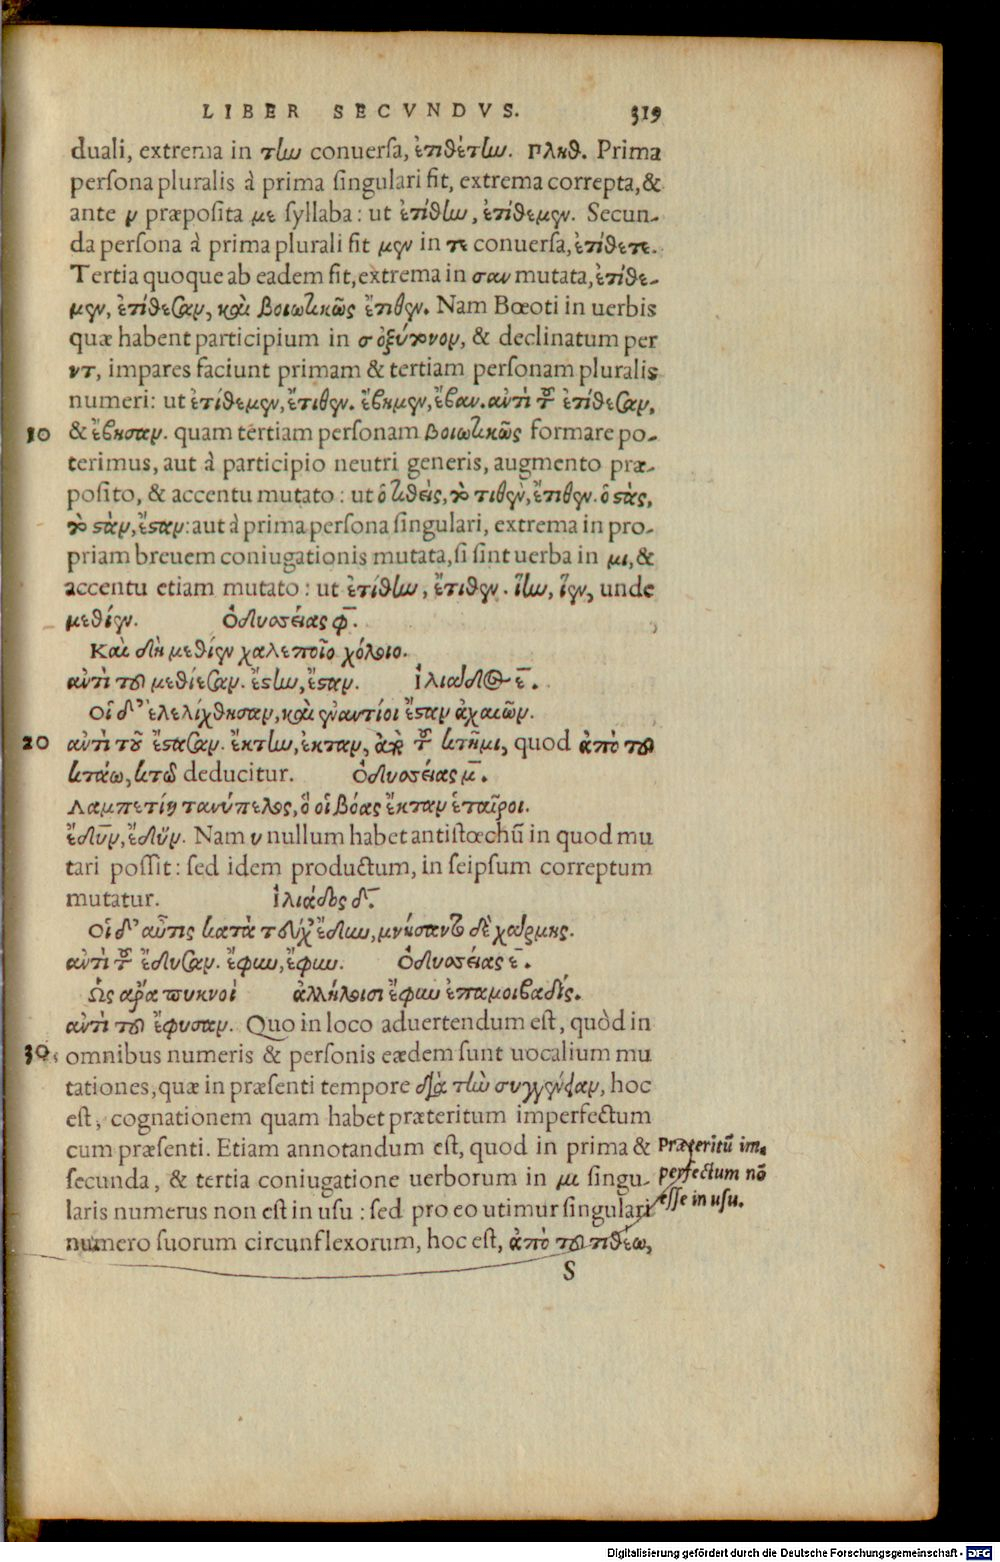 LIBER SECVNDVS. 319
duali, extrema in την conuersa, ἐτιθέτην. πληθ. Prima
persona pluralis à prima singulari fit, extrema correpta, &
ante ν præposita με syllaba: ut ἐτίθην, ἐτίθεμεν. Secun-
da persona à prima plurali fit μεν in τε conuersa, ἐτίθετε.
Tertia quoque ab eadem fit, extrema in σαν mutata, ἐτίθε-
μεν, ἐτίθεσαν, καὶ βοιωτικῶς ἔτιθεν. Nam Bœoti in uerbis
quæ habent participium in σ ὀξύτονον, & declinatum per
ντ, impares faciunt primam & tertiam personam pluralis
numeri: ut ἐτίθεμεν, ἔτιθεν. ἔβημεν, ἔβαν. ἀντὶ τοῦ ἐτίθεσαν,
10 & ἔβησαν. quam tertiam personam βοιωτικῶς formare po-
terimus, aut à participio neutri generis, augmento præ-
posito, & accentu mutato: ut ὁ τιθεὶς, τὸ τιθὲν, ἔτιθεν. ὁ στὰς,
τὸ στὰν, ἔσταν: aut à prima persona singulari, extrema in pro-
priam breuem coniugationis mutata, si sint uerba in μι, &
accentu etiam mutato: ut ἐτίθην, ἔτιθεν. ἵην, ἵεν, unde
μεθίεν. Ὀδυσσείας φ̄.
Καὶ δὴ μεθίεν χαλεποῖο χόλοιο.
ἀντὶ τοῦ μεθίεσαν. ἔστην, ἔσταν. Ἰλιάδος ε̄.
Οἱ δ' ἐλελίχθησαν, καὶ ἐναντίοι ἔσταν ἀχαιῶν.
20 ἀντὶ τοῦ ἔστασαν. ἔκτην, ἔκταν, ἀπὸ τοῦ κτῆμι, quod ἀπὸ τοῦ
κτάω, κτῶ deducitur. Ὀδυσσείας μ̄.
Λαμπετίη τανύπεπλος, ὅ οἱ βόας ἔκταν ἑταῖροι.
ἔδῡν, ἔδῠν. Nam υ nullum habet antistœchũ in quod mu
tari possit: sed idem productum, in seipsum correptum
mutatur. Ἰλιάδος δ̄.
Οἱ δ' αὖτις κατὰ τεύχε' ἔδυν, μνήσαντο δὲ χάρμης.
ἀντὶ τοῦ ἔδυσαν. ἔφυν, ἔφυν. Ὀδυσσείας ε̄.
Ὣς ἄρα πυκνοὶ ἀλλήλοισι ἔφυν ἐπαμοιβαδίς.
ἀντὶ τοῦ ἔφυσαν. Quo in loco aduertendum est, quòd in
30 omnibus numeris & personis eædem sunt uocalium mu
tationes, quæ in præsenti tempore διὰ τὴν συγγένειαν, hoc
est, cognationem quam habet præteritum imperfectum
cum præsenti. Etiam annotandum est, quod in prima & Præteritũ im-
secunda, & tertia coniugatione uerborum in μι singu- perfectum nõ
laris numerus non est in usu: sed pro eo utimur singulari esse in usu.
numero suorum circunflexorum, hoc est, ἀπὸ τοῦ τιθέω,
S
Digitalisierung gefördert durch die Deutsche Forschungsgemeinschaft - DFG